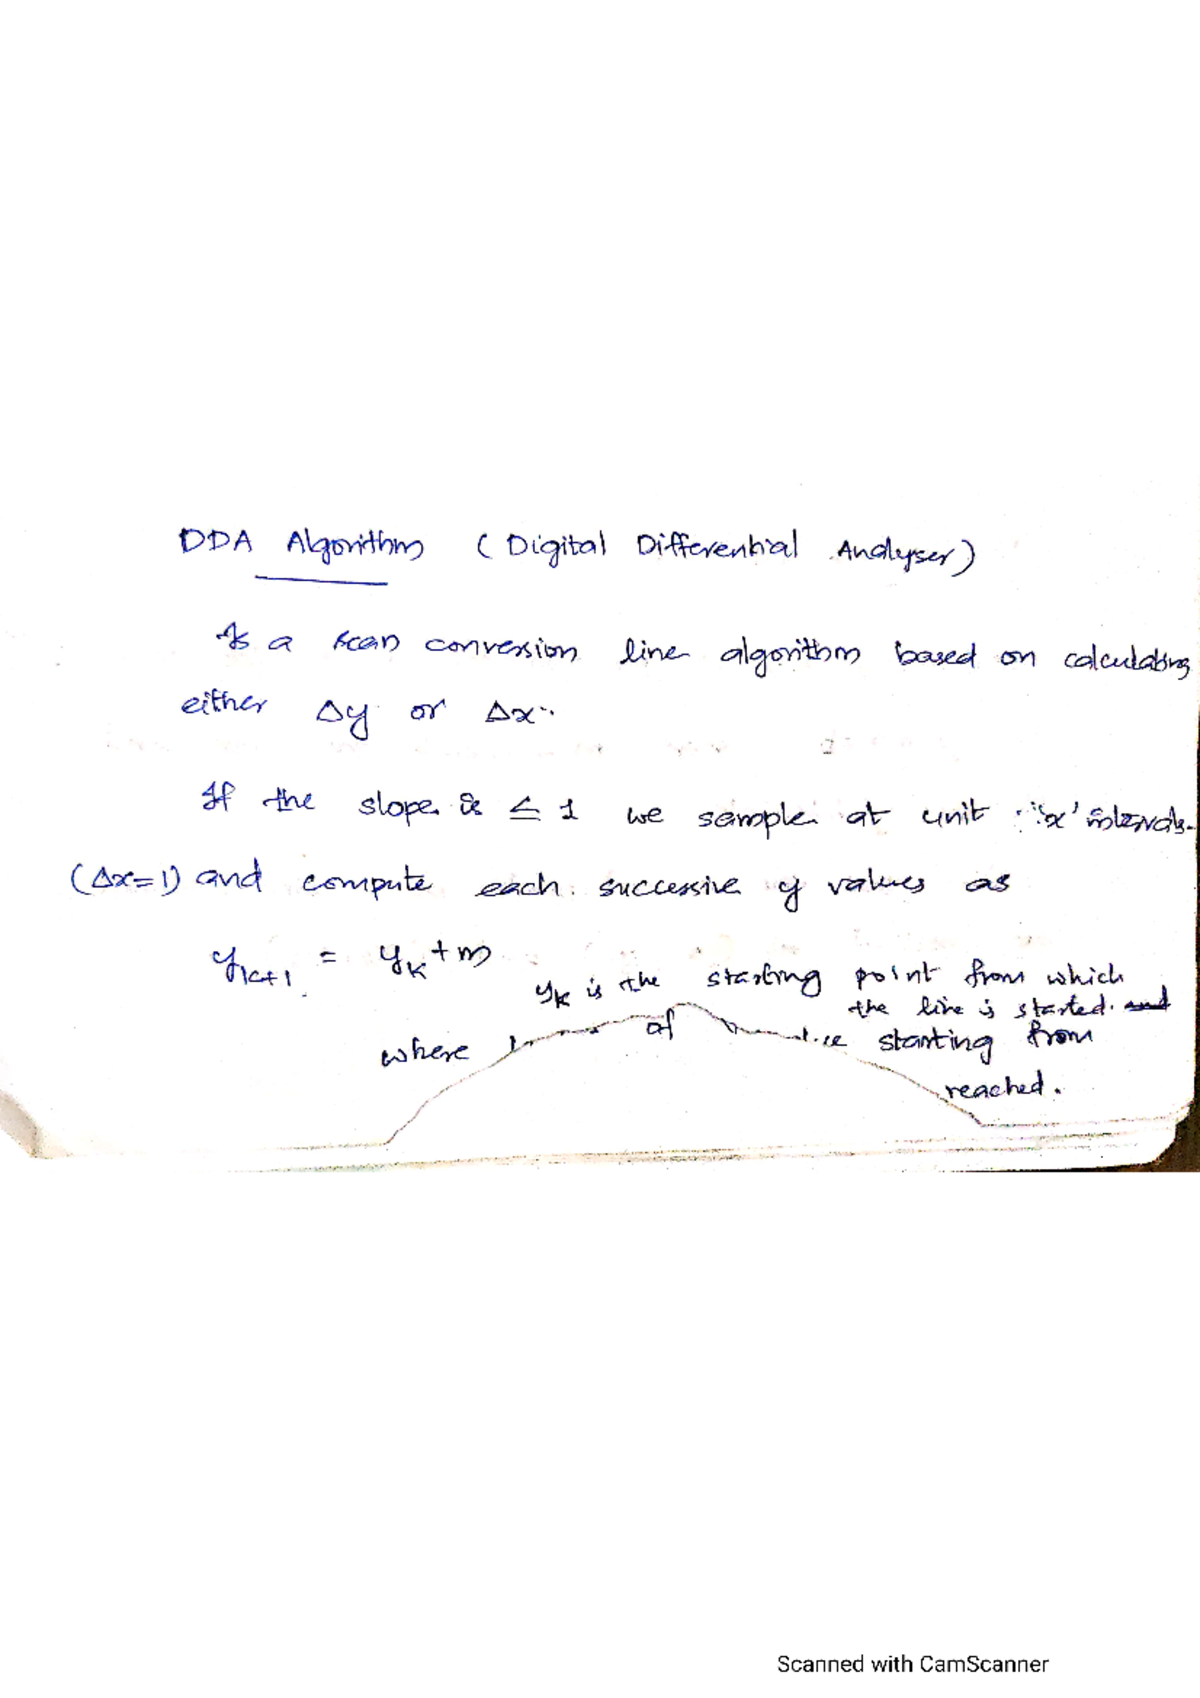 DDA Algorithm (Digital Differential Analyser)
Is a scan conversion line algorithm based on calculating
either Δy or Δx.
If the slope is ≤ 1 we sample at unit 'x' intervals.
(Δx=1) and compute each successive y values as
yk+1 = yk + m
yk is the starting point from which
the line is started. and
where of starting from
reached.
Scanned with CamScanner